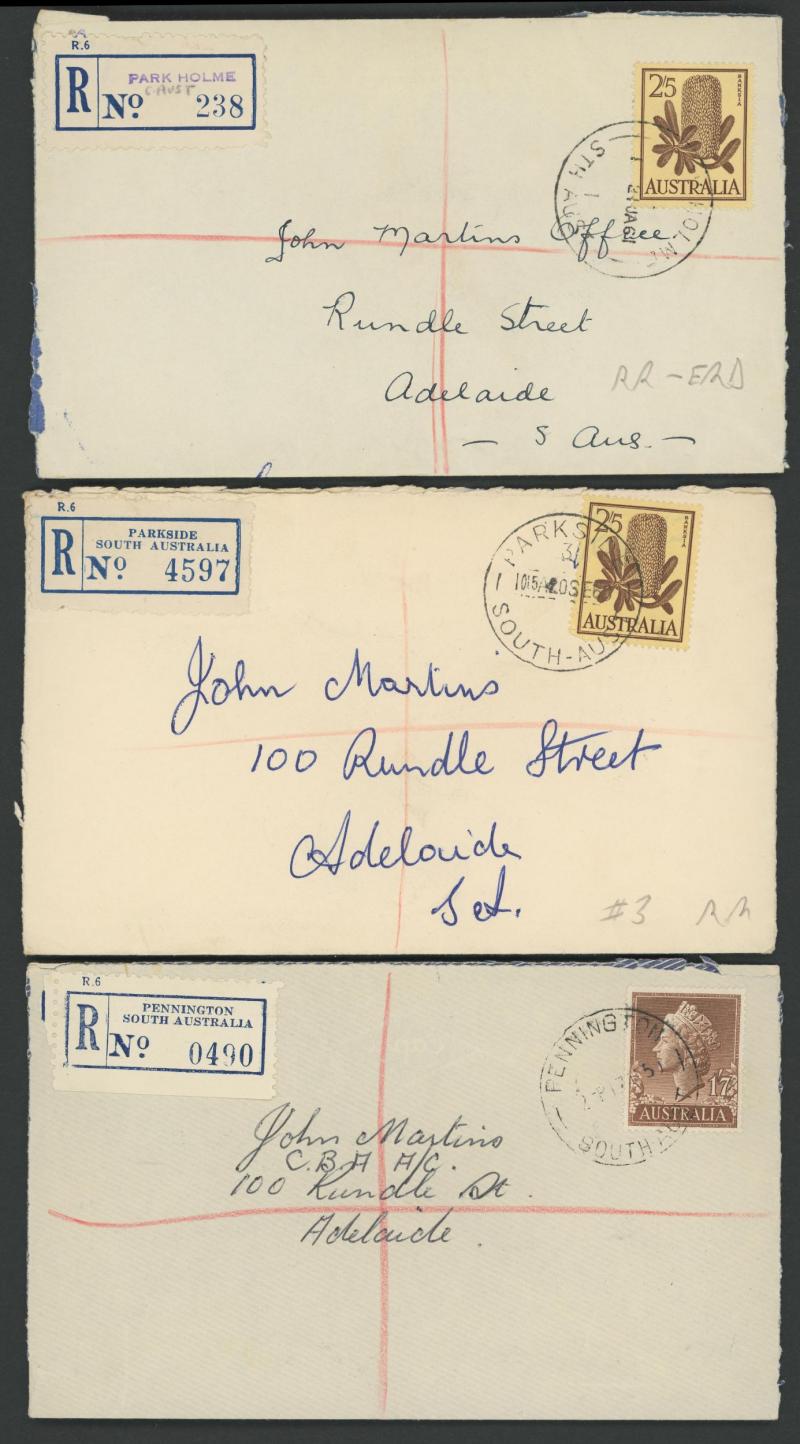 R.6
R No 238
PARK HOLME
S. AUST
2/5
BANKSIA
AUSTRALIA
STH AUST
John Martins Office
Rundle Street
Adelaide
RR - ERD
- S Aus. -
R.6
R No 4597
PARKSIDE
SOUTH AUSTRALIA
PARKS
1015A20SE6
SOUTH-AUS
2/5
BANKSIA
AUSTRALIA
John Martins
100 Rundle Street
Adelaide
S.A.
#3 RR
R.6
R No 0490
PENNINGTON
SOUTH AUSTRALIA
PENNINGTON
SOUTH AU
1/7
AUSTRALIA
John Martins
C.B.A A/C.
100 Rundle St.
Adelaide.